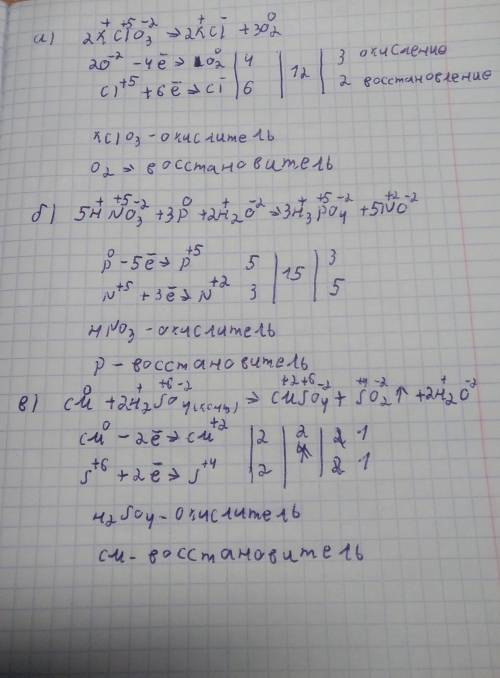 а) 2K⁺Cl⁺⁵O₃⁻² → 2K⁺Cl⁻ + 3O₂⁰
2O⁻² - 4ē → 1O₂⁰ | 4 | 12 | 3 окисление
Cl⁺⁵ + 6ē → Cl⁻ | 6 | | 2 восстановление
KClO₃ - окислитель
O₂ → восстановитель
б) 5H⁺N⁺⁵O₃⁻² + 3P⁰ + 2H₂⁺O⁻² → 3H₃⁺P⁺⁵O₄⁻² + 5N⁺²O⁻²
P⁰ - 5ē → P⁺⁵ 5 | 15 | 3
N⁺⁵ + 3ē → N⁺² 3 | | 5
HNO₃ - окислитель
P - восстановитель
в) Cu⁰ + 2H₂⁺S⁺⁶O₄⁻²(конц) → Cu⁺²S⁺⁶O₄⁻² + S⁺⁴O₂⁻²↑ + 2H₂⁺O⁻²
Cu⁰ - 2ē → Cu⁺² | 2 | 2 | 2 1
S⁺⁶ + 2ē → S⁺⁴ | 2 | | 2 1
H₂SO₄ - окислитель
Cu - восстановитель